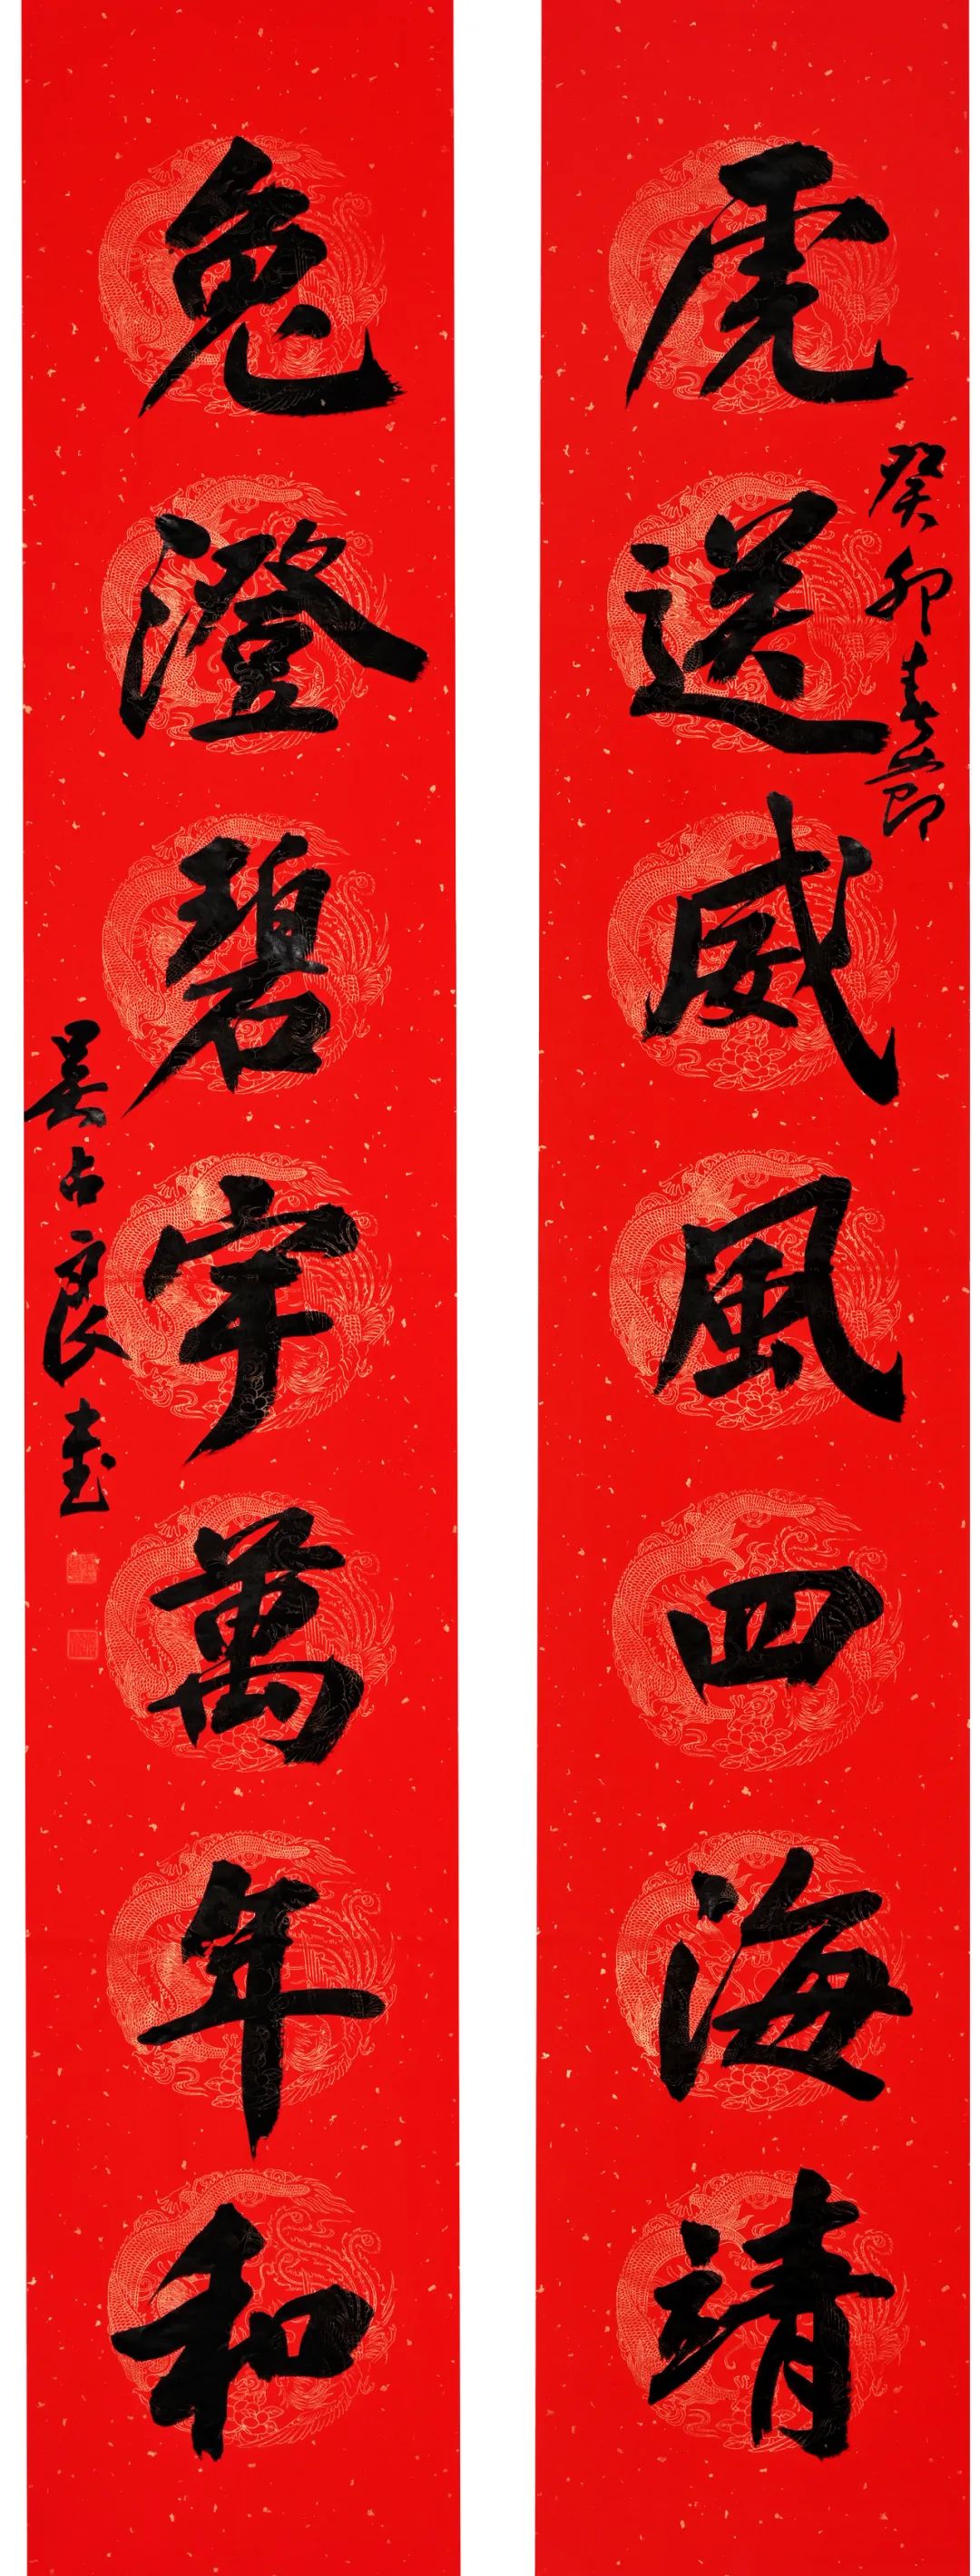 虎送威風四海靖
癸卯春節
兔澄碧宇萬年和
吴占良書